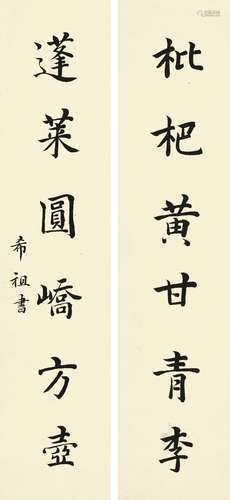 枇杷黄甘青李
蓬莱圓嶠方壺
希祖書